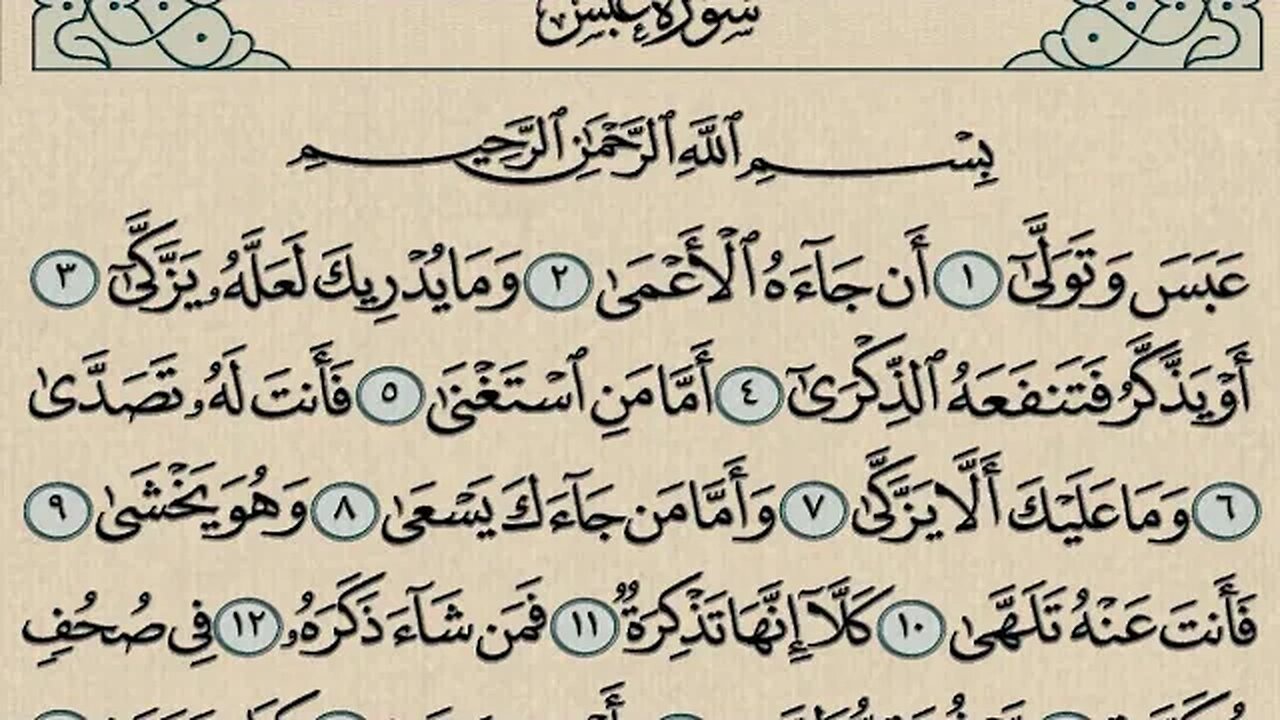 سورة عبس
بِسْمِ ٱللَّهِ ٱلرَّحْمَٰنِ ٱلرَّحِيمِ
عَبَسَ وَتَوَلَّىٰٓ ١ أَن جَآءَهُ ٱلْأَعْمَىٰ ٢ وَمَا يُدْرِيكَ لَعَلَّهُۥ يَزَّكَّىٰٓ ٣
أَوْ يَذَّكَّرُ فَتَنفَعَهُ ٱلذِّكْرَىٰٓ ٤ أَمَّا مَنِ ٱسْتَغْنَىٰ ٥ فَأَنتَ لَهُۥ تَصَدَّىٰ
٦ وَمَا عَلَيْكَ أَلَّا يَزَّكَّىٰ ٧ وَأَمَّا مَن جَآءَكَ يَسْعَىٰ ٨ وَهُوَ يَخْشَىٰ ٩
فَأَنتَ عَنْهُ تَلَهَّىٰ ١٠ كَلَّآ إِنَّهَا تَذْكِرَةٌ ١١ فَمَن شَآءَ ذَكَرَهُۥ ١٢ فِى صُحُفٍ